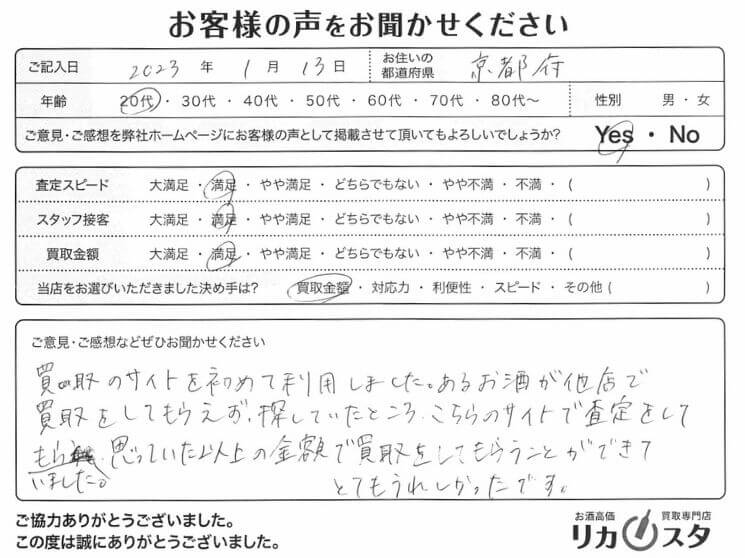 お客様の声をお聞かせください
ご記入日 2023 年 1 月 13 日 お住いの都道府県 京都府
年齢 20代・30代・40代・50代・60代・70代・80代〜 性別 男・女
ご意見・ご感想を弊社ホームページにお客様の声として掲載させて頂いてもよろしいでしょうか? Yes・No
査定スピード 大満足・満足・やや満足・どちらでもない・やや不満・不満・( )
スタッフ接客 大満足・満足・やや満足・どちらでもない・やや不満・不満・( )
買取金額 大満足・満足・やや満足・どちらでもない・やや不満・不満・( )
当店をお選びいただきました決め手は? 買取金額・対応力・利便性・スピード・その他( )
ご意見・ご感想などぜひお聞かせください
買取のサイトを初めて利用しました。あるお酒が他店で
買取をしてもらえず、探していたところ、こちらのサイトで査定をして
もらい
いました。
思っていた以上の金額で買取をしてもらうことができて
とてもうれしかったです。
ご協力ありがとうございました。
この度は誠にありがとうございました。
お酒高価 買取専門店
リカスタ